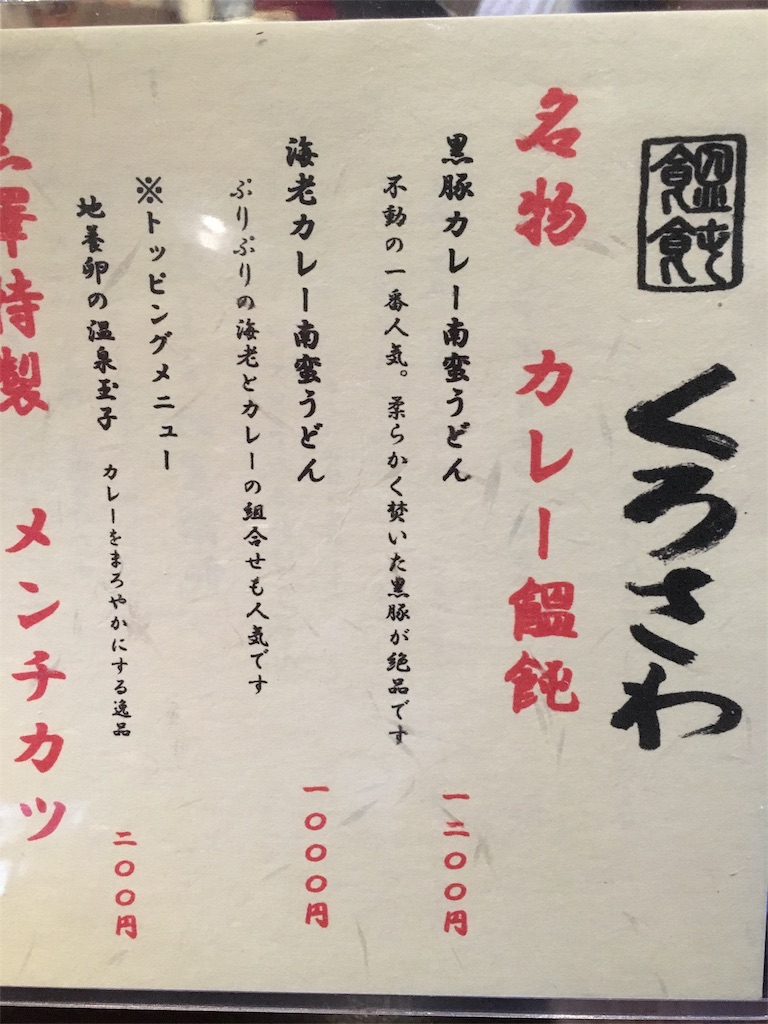 饂飩
くろさわ
名物 カレー饂飩
黒豚カレー南蛮うどん 一二〇〇円
不動の一番人気。柔らかく焚いた黒豚が絶品です
海老カレー南蛮うどん 一〇〇〇円
ぷりぷりの海老とカレーの組合せも人気です
※トッピングメニュー
地養卵の温泉玉子 カレーをまろやかにする逸品 二〇〇円
黒澤特製 メンチカツ